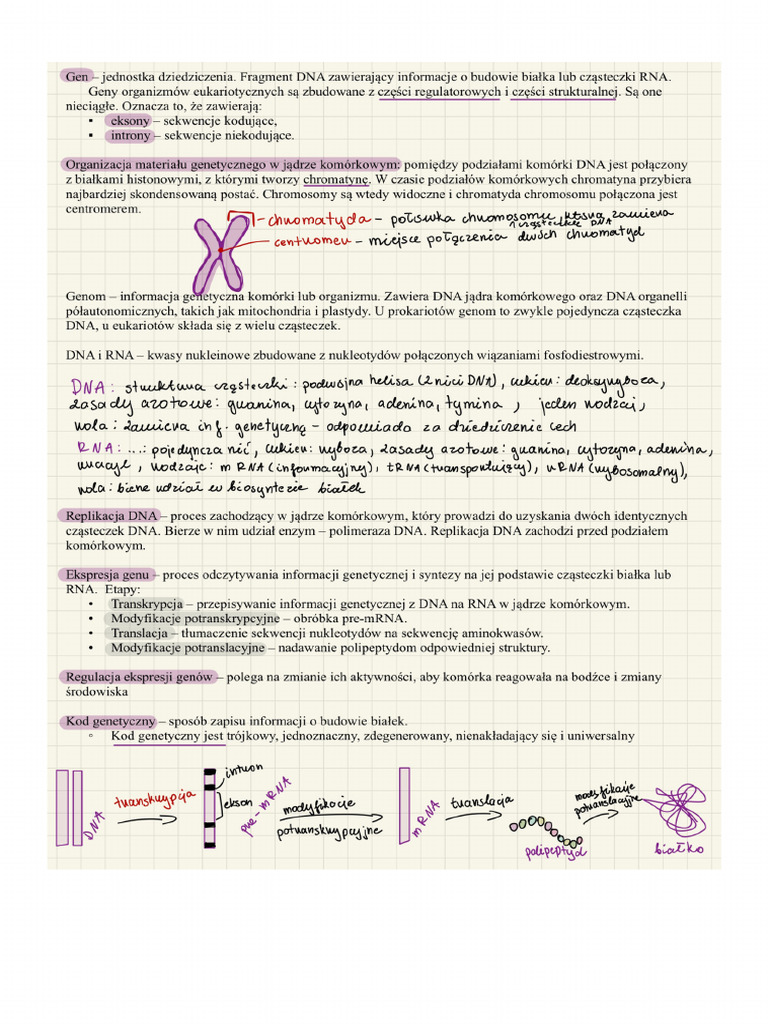 Gen – jednostka dziedziczenia. Fragment DNA zawierający informacje o budowie białka lub cząsteczki RNA.
Geny organizmów eukariotycznych są zbudowane z części regulatorowych i części strukturalnej. Są one
nieciągłe. Oznacza to, że zawierają:
• eksony – sekwencje kodujące,
• introny – sekwencje niekodujące.
Organizacja materiału genetycznego w jądrze komórkowym: pomiędzy podziałami komórki DNA jest połączony
z białkami histonowymi, z którymi tworzy chromatynę. W czasie podziałów komórkowych chromatyna przybiera
najbardziej skondensowaną postać. Chromosomy są wtedy widoczne i chromatyda chromosomu połączona jest
centromerem.
- chromatyda - połówka chromosomu, która zawiera
1 cząsteczkę DNA
centromer - miejsce połączenia dwóch chromatyd
Genom – informacja genetyczna komórki lub organizmu. Zawiera DNA jądra komórkowego oraz DNA organelli
półautonomicznych, takich jak mitochondria i plastydy. U prokariotów genom to zwykle pojedyncza cząsteczka
DNA, u eukariotów składa się z wielu cząsteczek.
DNA i RNA – kwasy nukleinowe zbudowane z nukleotydów połączonych wiązaniami fosfodiestrowymi.
DNA: struktura cząsteczki: podwójna helisa (2 nici DNA), cukier: deoksyryboza,
zasady azotowe: guanina, cytozyna, adenina, tymina, jeden rodzaj,
rola: zawiera inf. genetyczną - odpowiada za dziedziczenie cech
RNA: ...: pojedyncza nić, cukier: ryboza, zasady azotowe: guanina, cytozyna, adenina,
uracyl, rodzaje: mRNA (informacyjny), tRNA (transportujący), rRNA (rybosomalny),
rola: bierze udział w biosyntezie białek
Replikacja DNA – proces zachodzący w jądrze komórkowym, który prowadzi do uzyskania dwóch identycznych
cząsteczek DNA. Bierze w nim udział enzym – polimeraza DNA. Replikacja DNA zachodzi przed podziałem
komórkowym.
Ekspresja genu – proces odczytywania informacji genetycznej i syntezy na jej podstawie cząsteczki białka lub
RNA. Etapy:
• Transkrypcja – przepisywanie informacji genetycznej z DNA na RNA w jądrze komórkowym.
• Modyfikacje potranskrypcyjne – obróbka pre-mRNA.
• Translacja – tłumaczenie sekwencji nukleotydów na sekwencję aminokwasów.
• Modyfikacje potranslacyjne – nadawanie polipeptydom odpowiedniej struktury.
Regulacja ekspresji genów – polega na zmianie ich aktywności, aby komórka reagowała na bodźce i zmiany
środowiska
Kod genetyczny – sposób zapisu informacji o budowie białek.
◦ Kod genetyczny jest trójkowy, jednoznaczny, zdegenerowany, nienakładający się i uniwersalny
DNA
transkrypcja
intron
ekson
pre-mRNA
modyfikacje
potranskrypcyjne
mRNA
translacja
polipeptyd
modyfikacje
potranslacyjne
białko